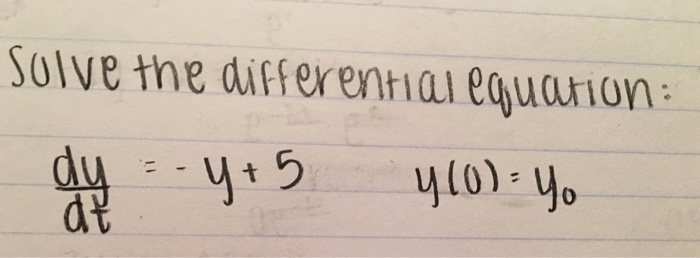 Solve the differential equation:
dy/dt = -y + 5 y(0) = y₀